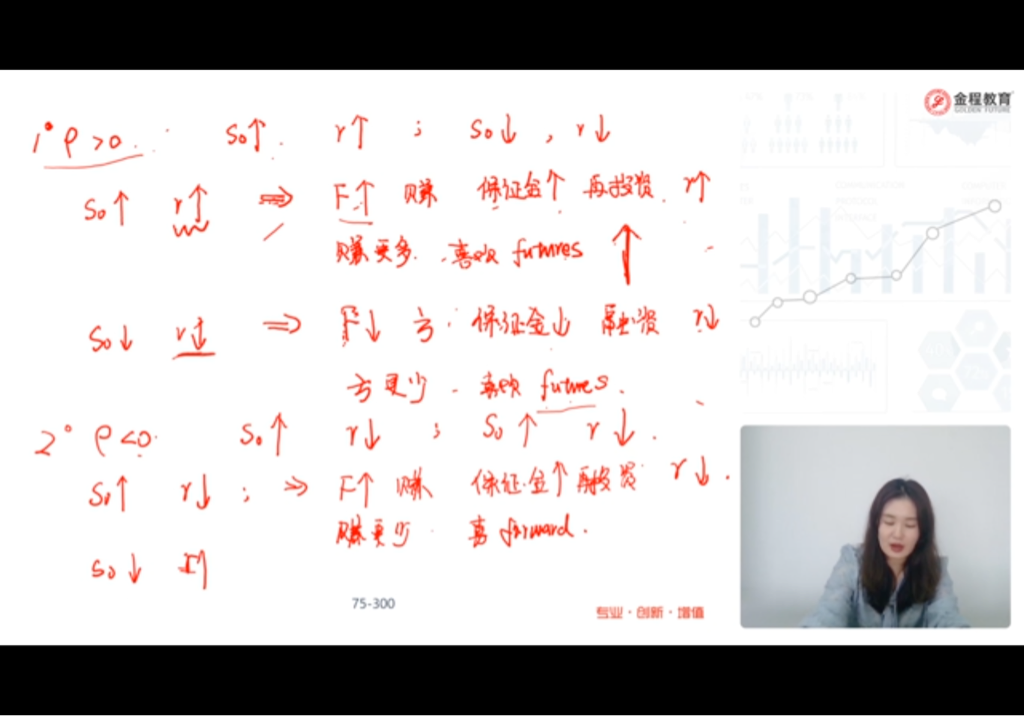 金程教育
GOLDEN FUTURE
1° ρ>0: S₀↑. r↑ ; S₀↓, r↓
S₀↑ r↑ ⇒ F↑ 赚 保证金↑ 再投资. r↑
赚更多. 喜欢 futures ↑
S₀↓ r↓ ⇒ F↓ 亏: 保证金↓ 融资 r↓
亏更少. 喜欢 futures.
2° ρ<0: S₀↑ r↓ ; S₀↑ r↓.
S₀↑ r↓ ; ⇒ F↑ 赚 保证金↑ 再投资 r↓.
赚更少. 喜 forward.
S₀↓ r↑
75-300
专业·创新·增值